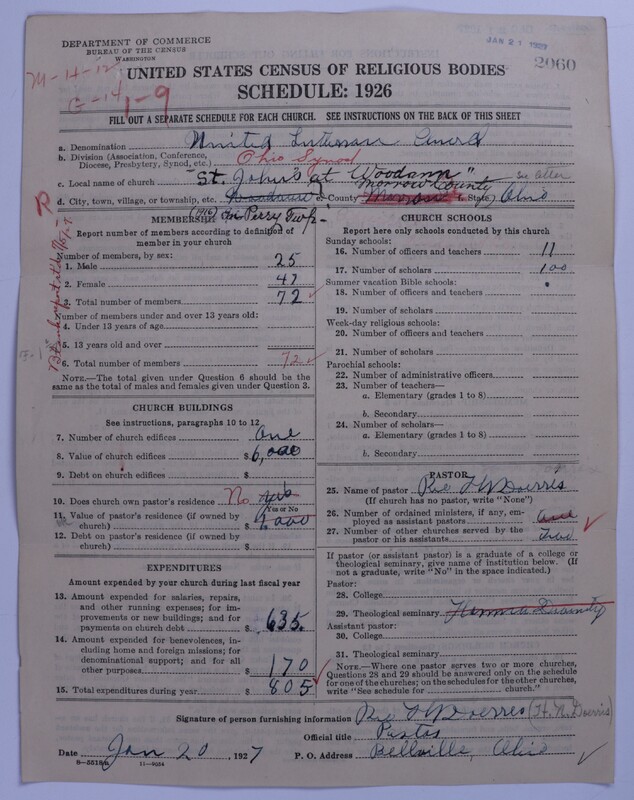 DEPARTMENT OF COMMERCE
BUREAU OF THE CENSUS
WASHINGTON
JAN 21 1927
2060
M-14-12
G-14
1-9
UNITED STATES CENSUS OF RELIGIOUS BODIES
SCHEDULE: 1926
FILL OUT A SEPARATE SCHEDULE FOR EACH CHURCH. SEE INSTRUCTIONS ON THE BACK OF THIS SHEET
a. Denomination United Lutheran Church
b. Division (Association, Conference, Diocese, Presbytery, Synod, etc.) Ohio Synod
c. Local name of church "St. John's at Woodann"
Morrow County
d. City, town, village, or township, etc. County (State) Ohio
Perry Twp
R
MEMBERSHIP
Report number of members according to definition of
member in your church
Number of members, by sex:
1. Male 25
2. Female 47
3. Total number of members 72
Number of members under and over 13 years old:
4. Under 13 years of age
5. 13 years old and over
6. Total number of members 72
NOTE.—The total given under Question 6 should be the
same as the total of males and females given under Question 3.
CHURCH BUILDINGS
See instructions, paragraphs 10 to 12
7. Number of church edifices One
8. Value of church edifices $ 6,000
9. Debt on church edifices $
10. Does church own pastor's residence No yes
Yes or No
11. Value of pastor's residence (if owned by
church) $ 4000
12. Debt on pastor's residence (if owned by
church) $
EXPENDITURES
Amount expended by your church during last fiscal year
13. Amount expended for salaries, repairs,
and other running expenses; for im-
provements or new buildings; and for
payments on church debt $ 635.
14. Amount expended for benevolences, in-
cluding home and foreign missions; for
denominational support; and for all
other purposes $ 170
15. Total expenditures during year $ 805
CHURCH SCHOOLS
Report here only schools conducted by this church
Sunday schools:
16. Number of officers and teachers 11
17. Number of scholars 100
Summer vacation Bible schools:
18. Number of officers and teachers
19. Number of scholars
Week-day religious schools:
20. Number of officers and teachers
21. Number of scholars
Parochial schools:
22. Number of administrative officers
23. Number of teachers—
a. Elementary (grades 1 to 8)
b. Secondary
24. Number of scholars—
a. Elementary (grades 1 to 8)
b. Secondary
PASTOR
25. Name of pastor Rev H W Doerres
(If church has no pastor, write "None")
26. Number of ordained ministers, if any, em-
ployed as assistant pastors
27. Number of other churches served by the
pastor or his assistants Two
If pastor (or assistant pastor) is a graduate of a college or
theological seminary, give name of institution below. (If
not a graduate, write "No" in the space indicated.)
Pastor:
28. College
29. Theological seminary Hamma Divinity
Assistant pastor:
30. College
31. Theological seminary
NOTE.—Where one pastor serves two or more churches,
Questions 28 and 29 should be answered only on the schedule
for one of the churches; on the schedules for the other churches,
write "See schedule for church."
Signature of person furnishing information Rev H W Doerres (H. W. Doerres)
Official title Pastor
Date Jan 20, 1927
P. O. Address Bellville, Ohio
8-5518a 11-9554